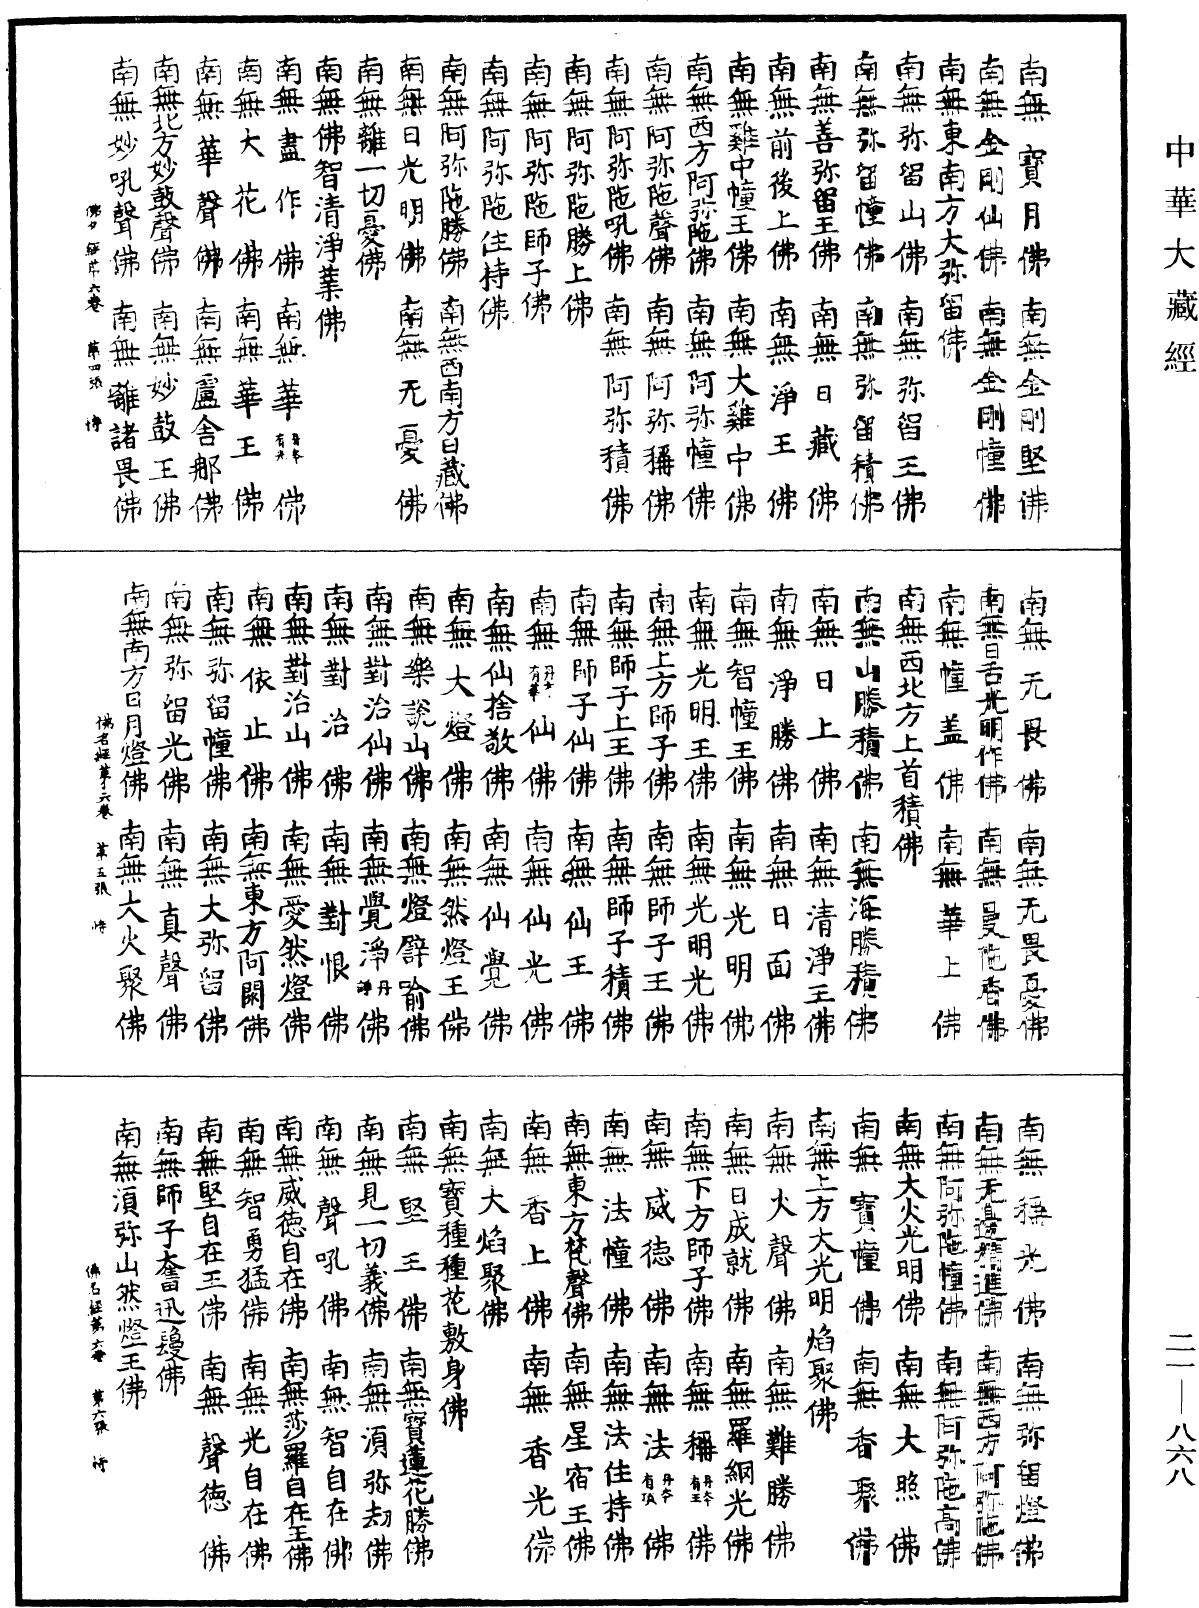 中華大藏經
南無寶月佛 南無金剛堅佛
南無金剛仙佛 南無金剛幢佛
南無東南方大弥留佛
南無弥留山佛 南無弥留王佛
南無弥留幢佛 南無弥留積佛
南無善弥留王佛 南無日藏佛
南無前後上佛 南無淨王佛
南無雞中幢王佛 南無大雞中佛
南無西方阿弥陁佛 南無阿弥幢佛
南無阿弥陁聲佛 南無阿弥稱佛
南無阿弥陁吼佛 南無阿弥積佛
南無阿弥陁勝上佛
南無阿弥陁師子佛
南無阿弥陁住持佛
南無阿弥陁勝佛 南無西南方日藏佛
南無日光明佛 南無无憂佛
南無離一切憂佛
南無佛智清淨業佛
南無盡作佛 南無華丹本有光佛
南無大花佛 南無華王佛
南無華聲佛 南無盧舍郍佛
南無北方妙鼓聲佛 南無妙鼓王佛
南無妙吼聲佛 南無離諸畏佛
佛名經第六卷 第四張
南無无畏佛 南無无畏憂佛
南無日舌光明作佛 南無曼陁香佛
南無幢盖佛 南無華上佛
南無西北方上首積佛
南無山勝積佛 南無海勝積佛
南無日上佛 南無清淨王佛
南無淨勝佛 南無日面佛
南無智幢王佛 南無光明佛
南無光明王佛 南無光明光佛
南無上方師子佛 南無師子王佛
南無師子上王佛 南無師子積佛
南無師子仙佛 南無仙王佛
南無丹本有華仙佛 南無仙光佛
南無仙捨敬佛 南無仙覺佛
南無大燈佛 南無然燈王佛
南無樂說山佛 南無燈譬喻佛
南無對治仙佛 南無覺淨丹諍佛
南無對治佛 南無對恨佛
南無對治山佛 南無愛然燈佛
南無依止佛 南無東方阿閦佛
南無弥留幢佛 南無大弥留佛
南無弥留光佛 南無真聲佛
南無南方日月燈佛 南無大火聚佛
佛名經第六卷 第五張
南無稱光佛 南無弥留燈佛
南無无邊精進佛 南無西方阿弥陁佛
南無阿弥陁幢佛 南無阿弥陁高佛
南無大火光明佛 南無大照佛
南無寶幢佛 南無香聚佛
南無上方大光明焰聚佛
南無火聲佛 南無難勝佛
南無日成就佛 南無羅網光佛
南無下方師子佛 南無稱丹本有王佛
南無威德佛 南無法丹本有佛
南無法幢佛 南無法住持佛
南無東方梵聲佛 南無星宿王佛
南無香上佛 南無香光佛
南無大焰聚佛
南無寶種種花敷身佛
南無堅王佛 南無寶蓮花勝佛
南無見一切義佛 南無須弥劫佛
南無聲吼佛 南無智自在佛
南無威德自在佛 南無莎羅自在王佛
南無智勇猛佛 南無光自在佛
南無堅自在王佛 南無聲德佛
南無師子奮迅佛
南無須弥山然燈王佛
佛名經第六卷 第六張
二一—八六八